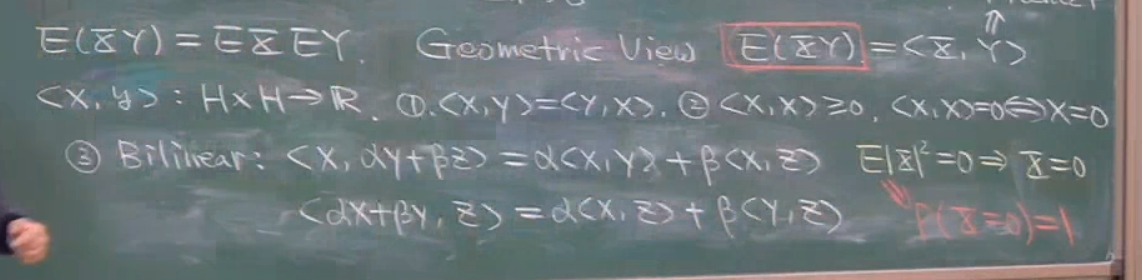 E(XY) = EX EY. Geometric View E(XY) = <X, Y>
<x, y> : H×H→ℝ. ①. <X,Y>=<Y,X>. ② <X,X>≥0, <X,X>=0⇔X=0
③ Bilinear: <X, αY+βZ> = α<X,Y> + β<X,Z> E|X|²=0 ⇒ X=0
<αX+βY, Z> = α<X,Z> + β<Y,Z> P(X=0)=1